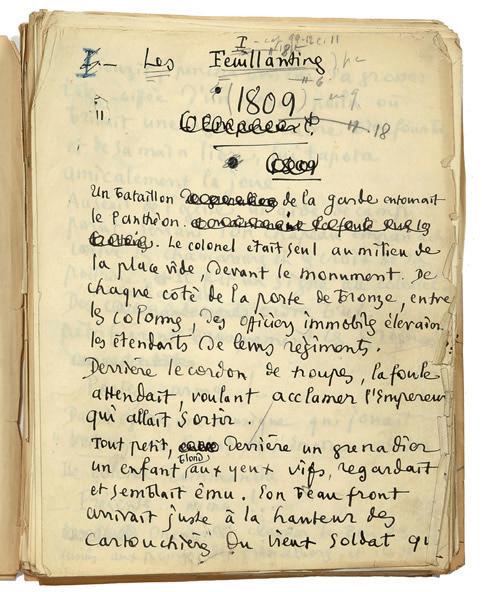 I
I - Les Feuillantines
(1809)
II.
1809
Un bataillon de la garde entourait
le Panthéon.
Le colonel était seul au milieu de
la place vide, devant le monument. De
chaque coté de la porte de bronze, entre
les colonnes, des officiers immobiles élevaient
les étendards de leurs régiments.
Derrière le cordon, de troupes, la foule
attendait, voulant acclamer l'Empereur
qui allait sortir.
Tout petit, derrière un grenadier
un enfant blond aux yeux vifs, regardait
et semblait ému. Son beau front
arrivait juste à la hauteur des
cartouchières du vieux soldat qui